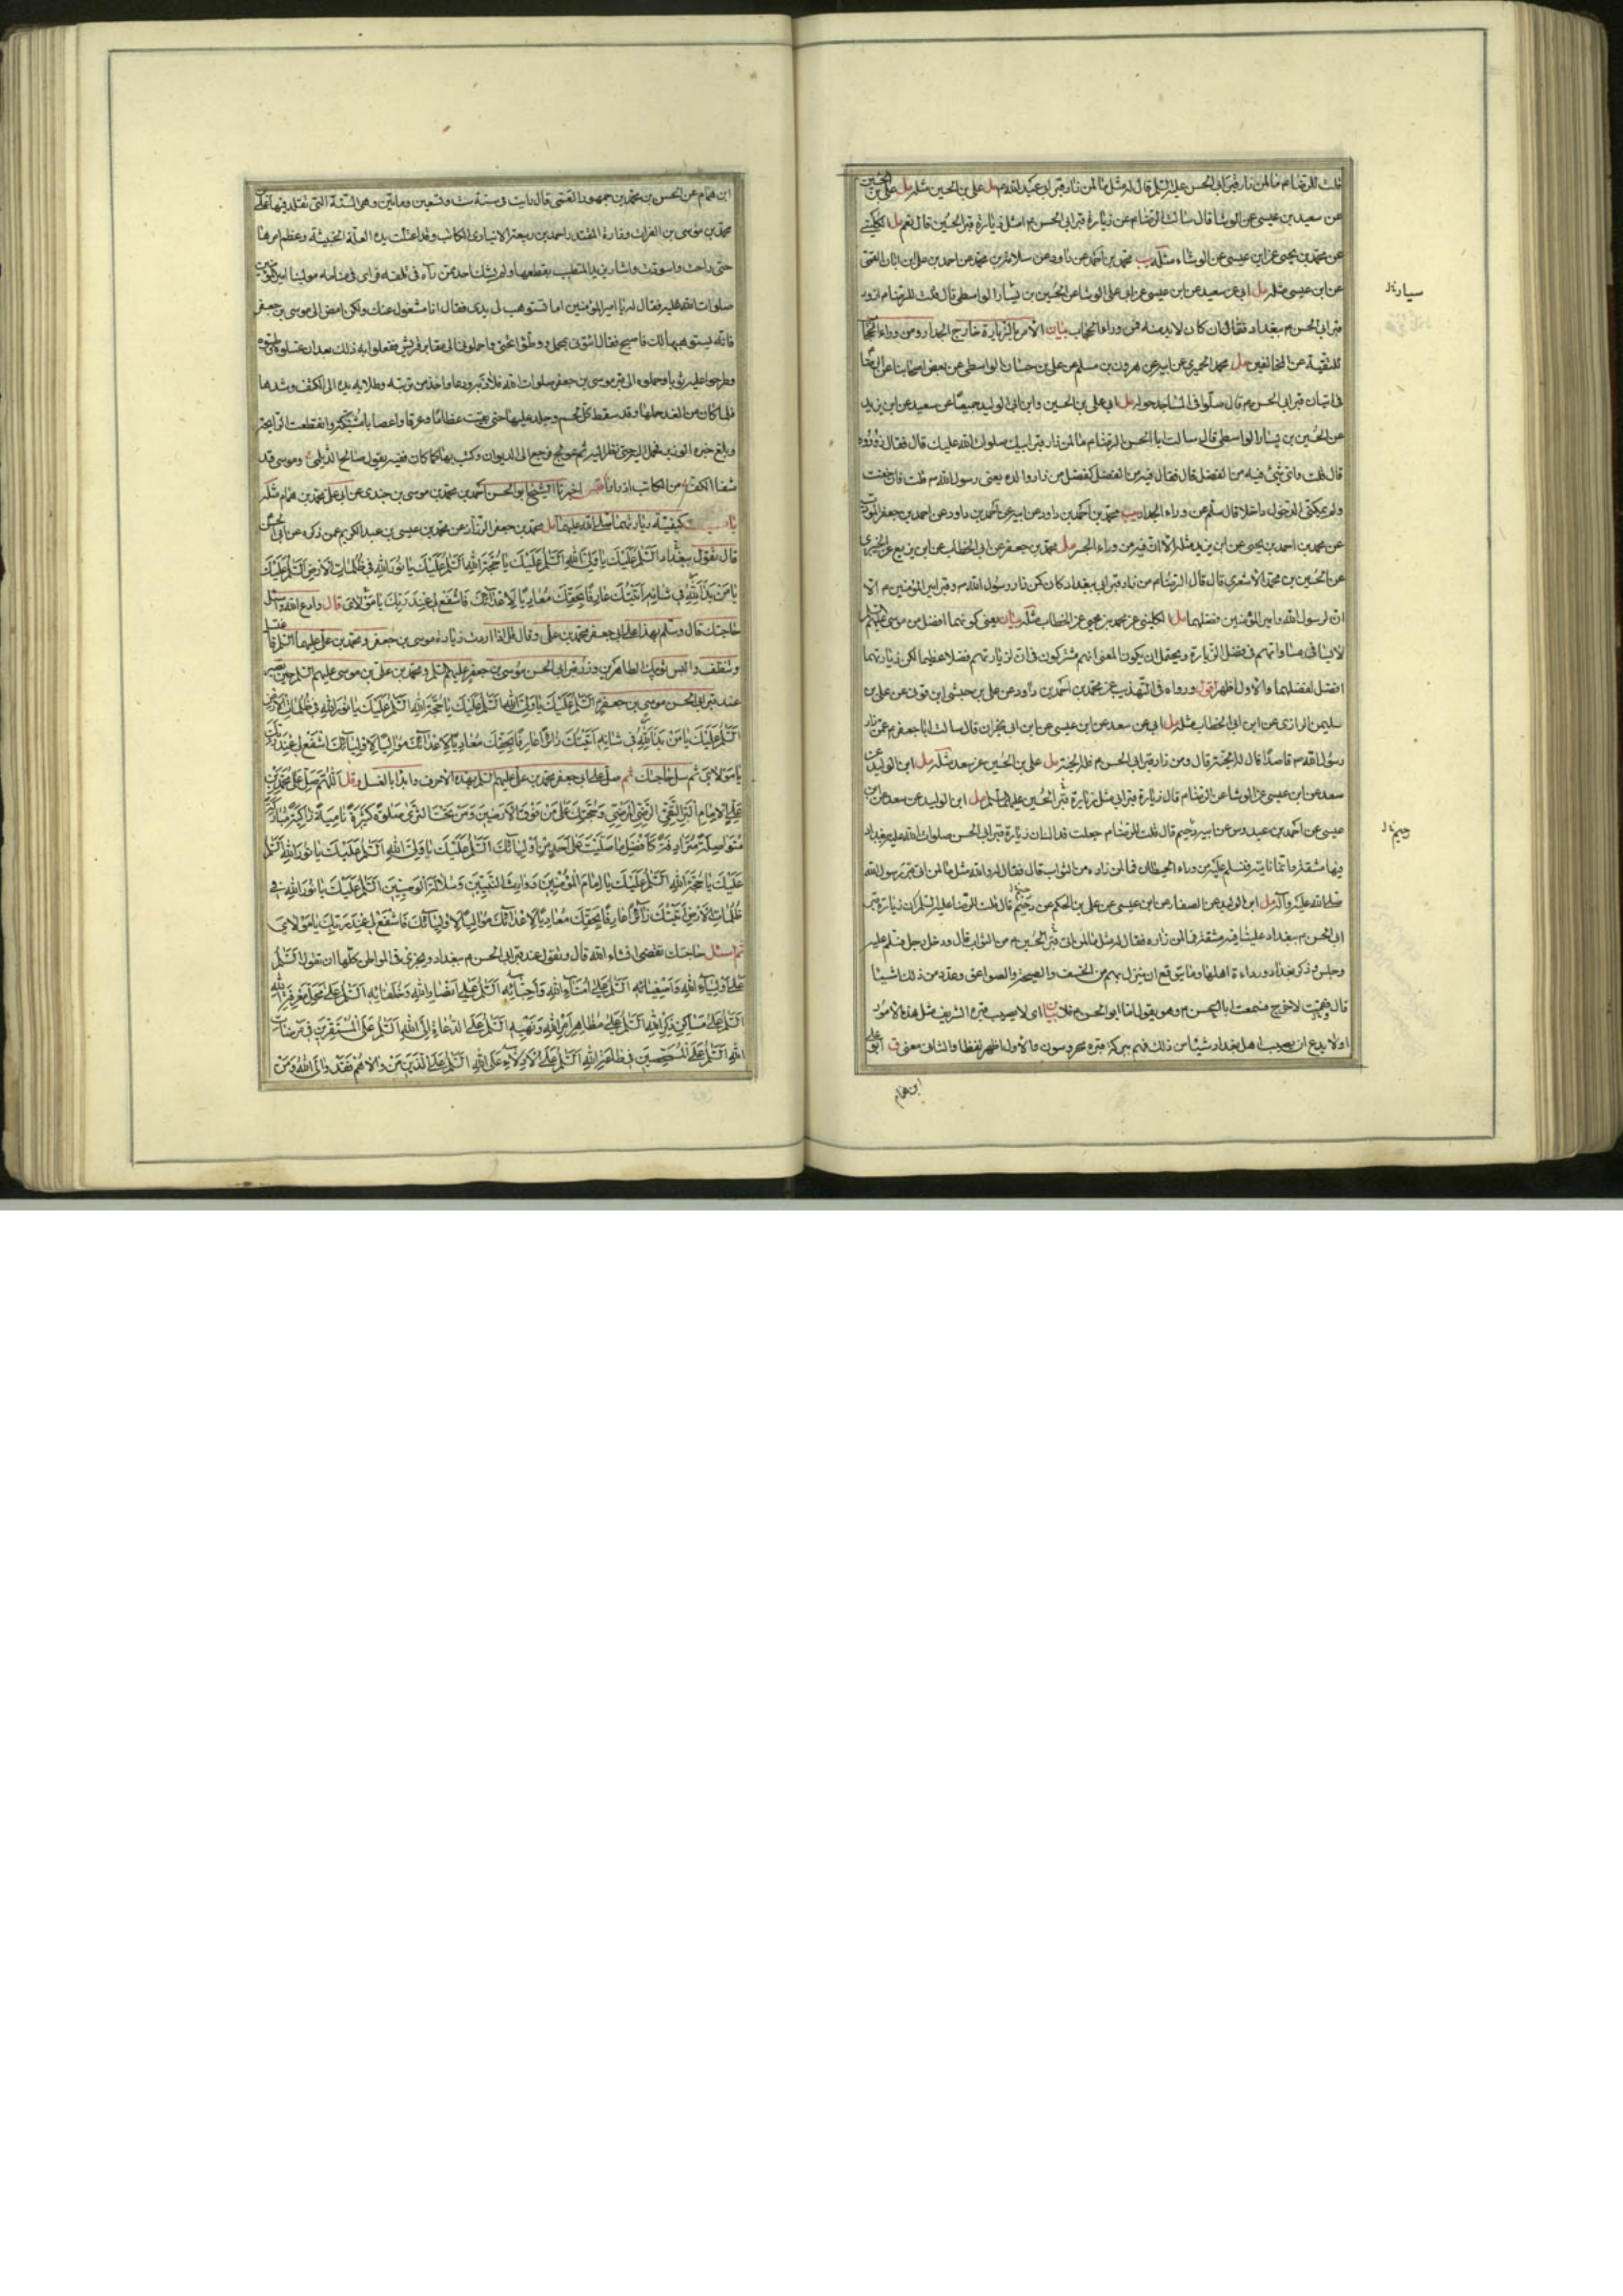 قلت للرضا م ما لمن زار قبر ابى الحسن عليه السلم قال له مثل ما لمن زار قبر ابى عبد الله م مل على بن الحسين مثله مل على بن الحسين
عن سعيد بن عيسى عن الوشا قال سالت الرضا م عن زيارة قبر ابى الحسن م امثل زيارة قبر الحسين قال نعم مل الكلينى
عن محمد بن يحيى عن ابن عيسى عن الوشاء مثله يب محمد بن احمد بن داود عن سلامة بن محمد عن احمد بن على بن ابان القمى
عن ابن عيسى مثله مل ابى عن سعيد عن ابن عيسى عن ابى على الوشا عن الحسين بن يشار الواسطى قال قلت للرضا م ازور
قبر ابى الحسن م ببغداد فقال ان كان لا بد منه فمن وراء الحجاب بيان الامر بالزيارة خارج الجدار ومن وراء الحجاب
للتقية عن المخالفين مل محمد الحميرى عن ابيه عن هرون بن مسلم عن على بن حسان الواسطى عن بعض اصحابنا عن الرضا
فى اتيان قبر ابى الحسن م قال صلوا فى المساجد حوله مل ابى على بن الحسين وابن الوليد جميعا عن سعيد عن ابن يزيد
عن الحسين بن يسار الواسطى قال سالت ابا الحسن الرضا م ما لمن زار قبر ابيك صلوات الله عليك قال فقال زوروه
قال قلت واى شئ فيه من الفضل قال فقال فيه من الفضل كفضل من زار والده يعنى رسول الله ص قلت فان خفت
ولم يمكنى الدخول داخلا قال سلم من وراء الجدار يب محمد بن احمد بن داود عن ابيه عن احمد بن داود عن احمد بن جعفر المؤدب
عن محمد بن احمد بن يحيى عن ابن يزيد مثله الا ان فيه من وراء الجسر مل محمد بن جعفر عن ابن ابى الخطاب عن ابن بزيع عن الخيبرى
عن الحسين بن محمد الاشعرى قال قال الرضا م من زار قبر ابى ببغداد كان كمن زار رسول الله ص وقبر امير المؤمنين م الا
ان لرسول الله وامير المؤمنين فضلهما مل الكلينى عن محمد بن يحيى عن الخطاب مثله بيان يعنى كونهما افضل من موسى عليهم السلم
لا ينافى مساواتهم فى فضل الزيارة ويحتمل ان يكون المعنى انهم مشتركون فى ان لزيارتهم فضلا عظيما لكن زيارتهما
افضل لفضلهما والاول اظهر اقول ورواه فى التهذيب عن محمد بن احمد بن داود عن على بن حبشى ابن قونى عن على بن
سليمن الرازى عن ابن ابى الخطاب مثله مل ابى عن سعد عن ابن عيسى عن ابن ابى نجران قال سالت ابا جعفر م عمن زار
رسول الله ص قاصدا قال له الجنة قال ومن زار قبر ابى الحسن م فله الجنة مل على بن الحسين عن سعد مثله مل ابن الوليد عن
سعد عن ابن عيسى عن الوشا عن الرضا م قال زيارة قبر ابى مثل زيارة قبر الحسين عليهما السلم مل ابن الوليد عن سعد عن ابن
عيسى عن احمد بن عبدوس عن ابيه رحيم قال قلت للرضا م جعلت فداك ان زيارة قبر ابى الحسن صلوات الله عليه ببغداد
فيها مشقة وانما ناتيه فنسلم عليه من وراء الحيطان فما لمن زاره من الثواب قال فقال له والله مثل ما لمن اتى قبر رسول الله
صلى الله عليه وآله مل ابن الوليد عن الصفار عن ابن عيسى عن على بن الحكم عن رحيم قال قلت للرضا عليه السلم ان زيارة قبر
ابى الحسن م ببغداد علينا فيه مشقة فما لمن زاره فقال له مثل ما لمن اتى قبر الحسين م من الثواب قال ودخل رجل فسلم عليه
وجلس وذكر بغداد ورداءة اهلها وما يتوقع ان ينزل بهم من الخسف والصيحة والصواعق وعدد من ذلك اشياء
قال فقمت لاخرج فسمعت ابا الحسن م وهو يقول اما ابو الحسن م فلا بيان اى لا يصيب قبره الشريف مثل هذه الامور
او لا يدع ان يصيب اهل بغداد شيئا من ذلك فهم ببركة قبره محروسون والاول اظهر لفظا والثانى معنى ق ابو على
سيار
رحيم
ابن همام
ابن همام عن الحسن بن محمد بن جمهور القمى قال رايت فى سنة ست وتسعين ومايتين وهى السنة التى تقلد فيها على
محمد بن موسى بن الفرات وزارة المقتدر احمد بن ربيعة الانبارى الكاتب وقد اعتلت يده العلة الخبيثة وعظم امرها
حتى راحت واسودت واشار يزيد المتطبب بقطعها ولم يشك احد ممن رآه فى تلفه فراى فى منامه مولينا امير المؤمنين
صلوات الله عليه فقال له يا امير المؤمنين اما تستوهب لى يدى فقال انا مشغول عنك ولكن امض الى موسى بن جعفر
فانه يستوهبها لك فاصبح فقال ائتونى بمحمل ووطؤا تحتى واحملونى الى مقابر قريش ففعلوا به ذلك بعد ان غسلوه وطيبوه
وطرحوا عليه ثوبا وحملوه الى قبر موسى بن جعفر صلوات الله عليه فلاذ به ودعا واخذ من تربته وطلا به يده الى الكتف وشدها
فلما كان من الغد حلها وقد سقط كل لحم وجلد عليها حتى بقيت عظاما وعرقا واعصابا مشبكة وانقطعت الرايحة
وبلغ خبره الوزير فحمل اليه حتى نظر اليه ثم عولج فرجع الى الديوان وكتب بها كما كان ففيه يقول صالح الديلمى وموسى قد
شفا الكف من الكاتب اذ زارا قبس اخبرنا الشيخ ابو الحسن احمد بن محمد بن موسى بن جندى عن ابى على محمد بن همام مثله
باب كيفية زيارتهما صلى الله عليهما مل محمد بن جعفر الرزاز عن محمد بن عيسى بن عبد الكريم عمن ذكره عن ابى الحسن
قال تقول ببغداد السلم عليك يا ولى الله السلم عليك يا حجة الله السلم عليك يا نور الله فى ظلمات الارض السلم عليك
يا من بدا لله فى شانه اتيتك عارفا بحقك معاديا لاعدائك فاشفع لى عند ربك يا مولاى قال وادع الله واسئل
حاجتك قال وسلم بهذا على ابى جعفر محمد بن على وقال قل اذا اردت زيارة موسى بن جعفر ومحمد بن على عليهما السلم فاغتسل
وتنظف والبس ثوبيك الطاهرين وزر قبر ابى الحسن موسى بن جعفر عليهم السلم ومحمد بن على بن موسى عليهم السلم حين تصير
عند قبر ابى الحسن موسى بن جعفر م السلم عليك يا ولى الله السلم عليك يا حجة الله السلم عليك يا نور الله فى ظلمات الارض
السلم عليك يا من بدا لله فى شانه اتيتك زائرا عارفا بحقك معاديا لاعدائك مواليا لاوليائك اشفع لى عند ربك
يا مولاى ثم سل حاجتك ثم صل على ابى جعفر محمد بن على عليهم السلم بهذه الاحرف وابدا بالغسل وقل اللهم صل على محمد بن
على الامام البر التقى الرضى المرضى وحجتك على من فوق الارضين ومن تحت الثرى صلوة كثيرة نامية زاكية مباركة
متواصلة مترادفة كافضل ما صليت على احد من اوليائك السلم عليك يا ولى الله السلم عليك يا نور الله السلم
عليك يا حجة الله السلم عليك يا امام المؤمنين ووارث النبيين وسلالة الوصيين السلم عليك يا نور الله فى
ظلمات الارض اتيتك زائرا عارفا بحقك معاديا لاعدائك مواليا لاوليائك فاشفع لى عند ربك يا مولاى
ثم اسئل حاجتك تقضى انشاء الله قال وتقول عند قبر ابى الحسن م ببغداد ويجزى فى المواطن كلها ان تقول السلم
على اولياء الله واصفيائه السلم على امناء الله واحبائه السلم على انصار الله وخلفائه السلم على محل معرفة الله
السلم على مساكن ذكر الله السلم على مظاهر امر الله ونهيه السلم على الدعاة الى الله السلم على المستقرين فى مرضات
الله السلم على الممحصين فى طاعة الله السلم على الادلاء على الله السلم على الذين من والاهم فقد والى الله ومن